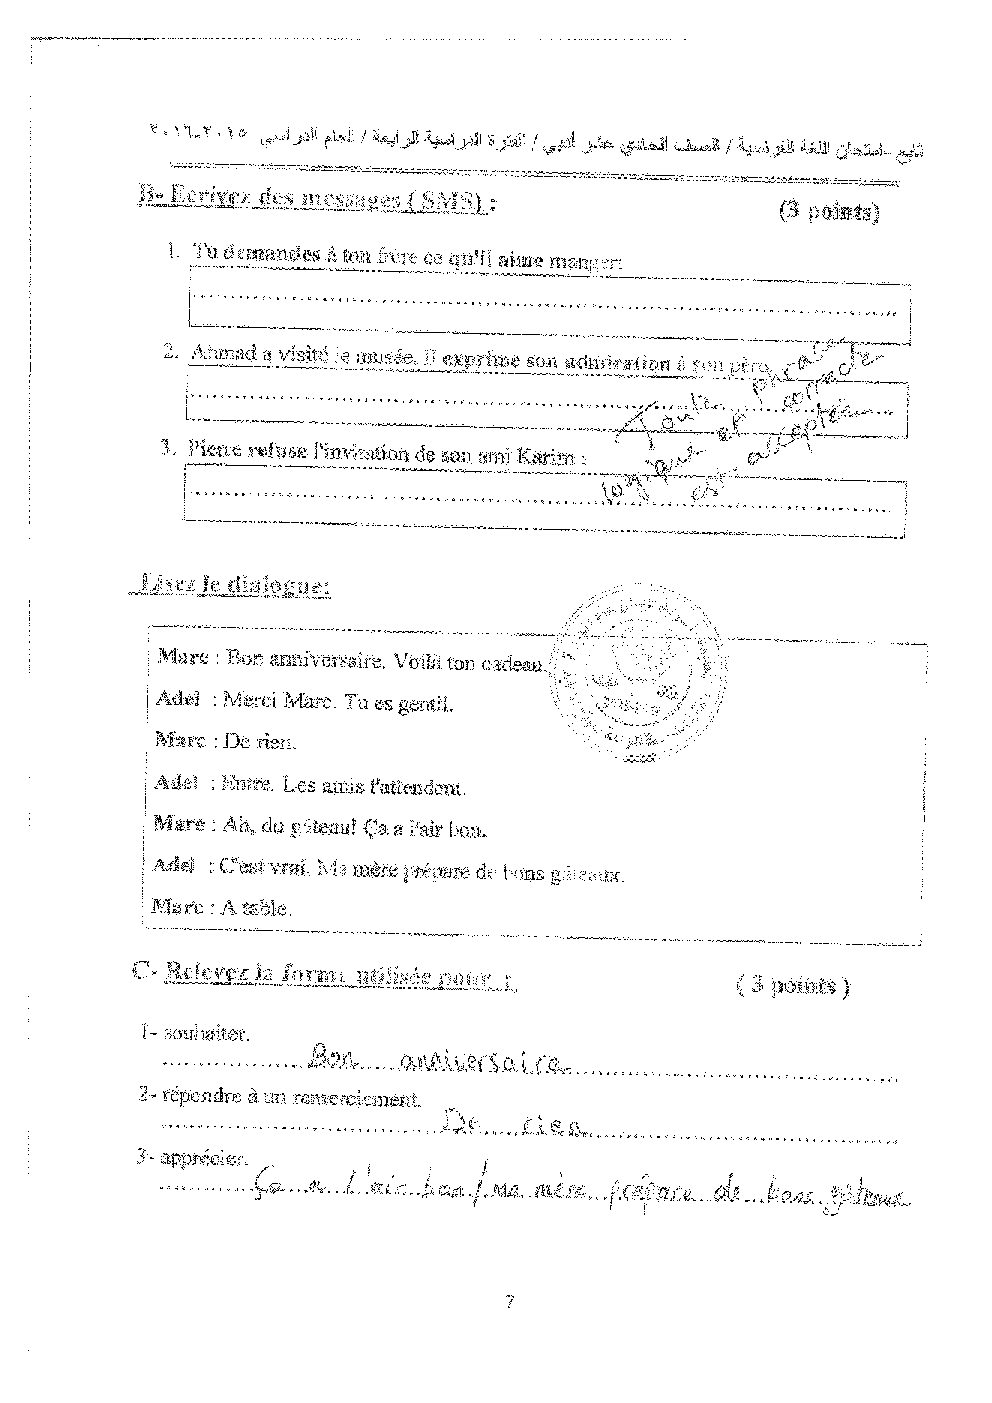 تابع -امتحان اللغة الفرنسية / الصف الحادي عشر أدبي / الفترة الدراسية الرابعة / العام الدراسي ٢٠١٥-٢٠١٦
B- Ecrivez des messages ( SMS) :
(3 points)
1. Tu demandes à ton frère ce qu'il aime manger:
2. Ahmad a visité le musée. Il exprime son admiration à son père
Toute phrase
logique et correcte
est acceptée
3. Pierre refuse l'invitation de son ami Karim :
Lisez le dialogue:
Marc : Bon anniversaire. Voilà ton cadeau.
Adel : Merci Marc. Tu es gentil.
Marc : De rien.
Adel : Entre. Les amis t'attendent.
Marc : Ah, du gâteau! Ça a l'air bon.
Adel : C'est vrai. Ma mère prépare de bons gâteaux.
Marc : A table.
C- Relevez la forme utilisée pour :
( 3 points )
1- souhaiter.
Bon anniversaire
2- répondre à un remerciement.
De rien
3- apprécier.
Ça a l'air bon / ma mère prépare de bons gâteaux
7